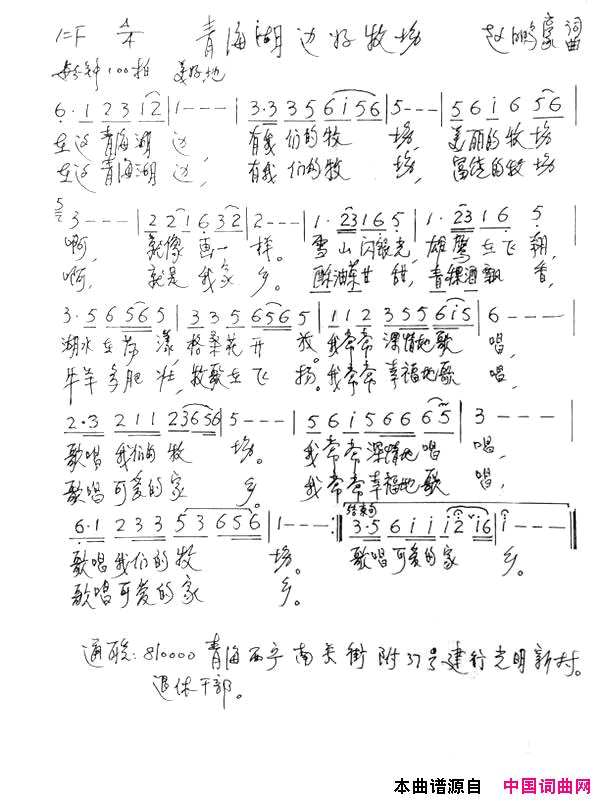 1=F 4/4 青海湖边好牧场 赵鹏豪 词曲
每分钟100拍 美好地
6·1 2 3 1 2 | 1 - - - | 3·3 3 5 6 i 5 6 | 5 - - - | 5 6 i 6 5 6 |
在这青海湖 边, 有我们的牧 场, 美丽的牧场
在这青海湖 边, 有我们的牧 场, 富饶的牧场
3 - - - | 2 2 1 6 3 2 | 2 - - - | 1· 2 3 1 6 5 | 1· 2 3 1 6 5 |
啊, 就像画一 样。 雪山闪银光, 雄鹰在飞翔,
啊, 就是我家 乡。 酥油茶甘甜, 青稞酒飘香,
3·5 6 5 5 6 5 | 3 3 5 6 5 6 5 | 1 1 2 3 5 5 6 i 5 | 6 - - - |
湖水在荡漾, 格桑花开放。 我常常深情地歌 唱,
牛羊多肥壮, 牧歌在飞扬。 我常常幸福地歌 唱,
2·3 2 1 1 2 3 6 5 6 | 5 - - - | 5 6 i 5 6 6 6 5 | 3 - - - |
歌唱我们的牧 场。 我常常深情地唱 唱,
歌唱可爱的家 乡。 我常常幸福地歌 唱,
结束句
6·1 2 3 3 5 3 6 5 6 | 1 - - - :‖ 3·5 6 i i i 2 i 6 | i - - - ‖
歌唱我们的牧 场。 歌唱可爱的家 乡。
歌唱可爱的家 乡。
通联: 810000 青海西宁南关街附37号建行光明新村。
退休干部。
本曲谱源自 中国词曲网